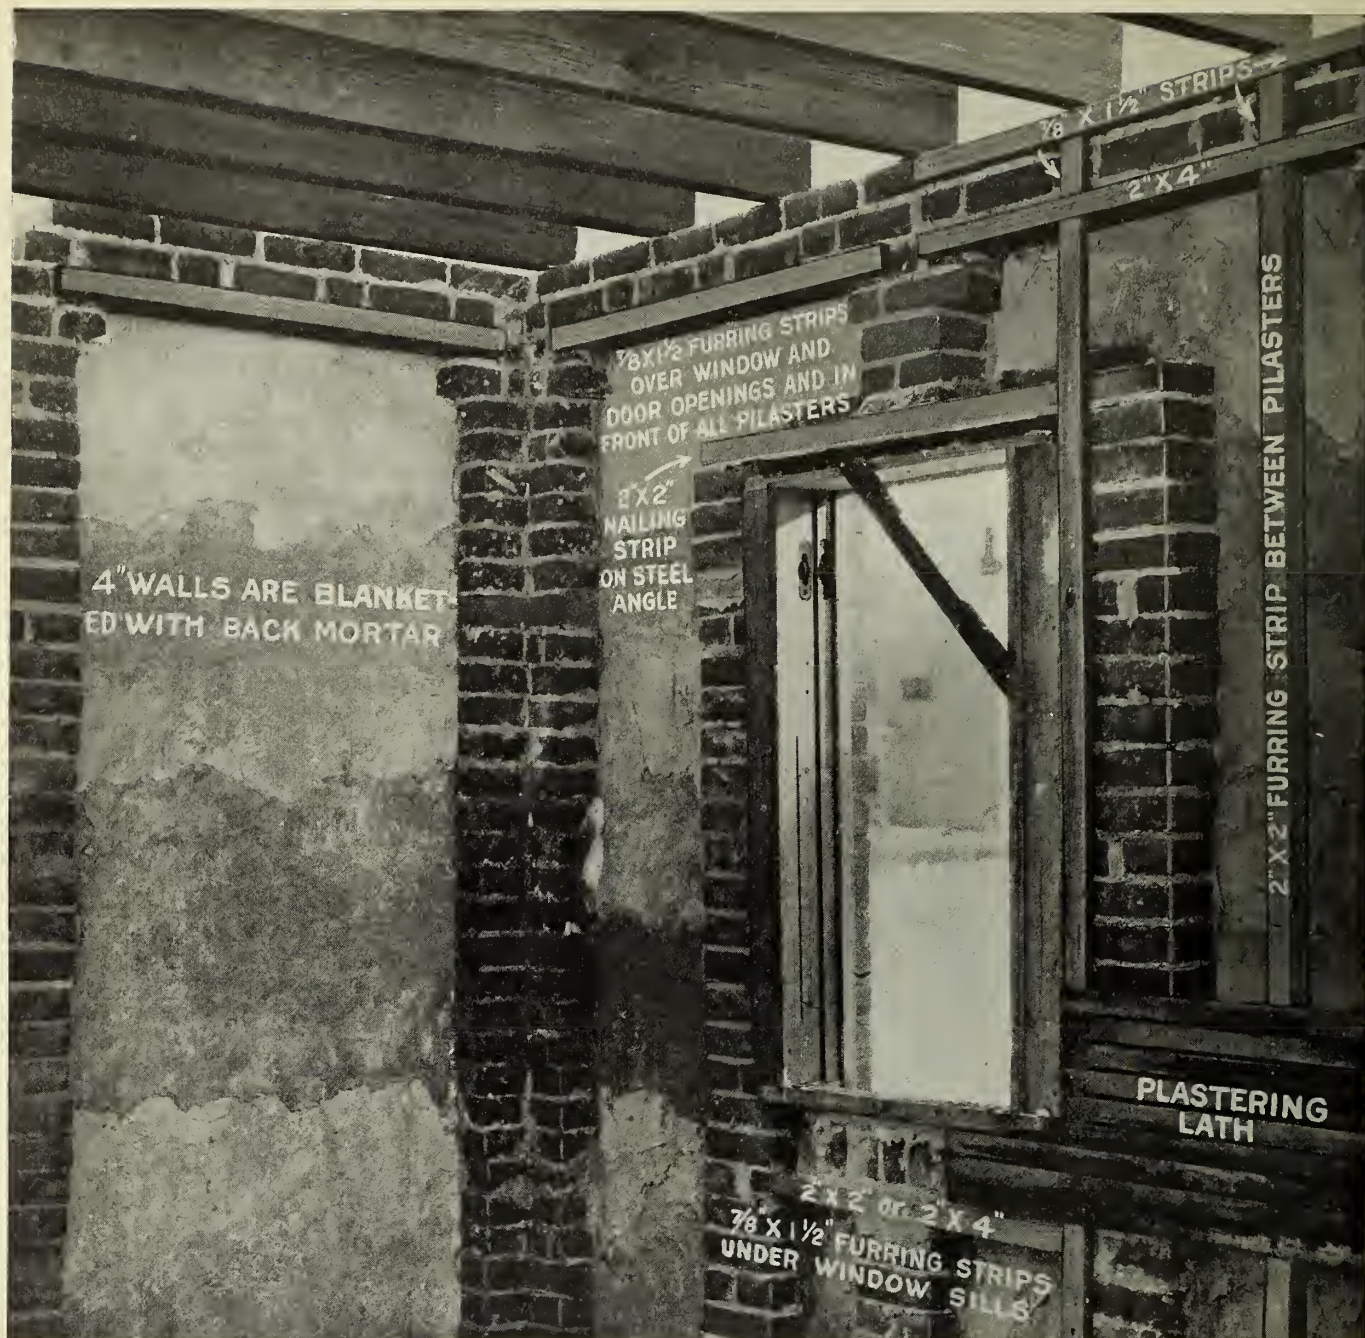 7/8 X 1 1/2" STRIPS
2" X 4"
7/8 X 1 1/2 FURRING STRIPS
OVER WINDOW AND
DOOR OPENINGS AND IN
FRONT OF ALL PILASTERS
2" X 2"
NAILING
STRIP
ON STEEL
ANGLE
4" WALLS ARE BLANKET-
ED WITH BACK MORTAR
2" X 2" FURRING STRIP BETWEEN PILASTERS
PLASTERING
LATH
2" X 2" or 2" X 4"
7/8" X 1 1/2" FURRING STRIPS
UNDER WINDOW SILLS